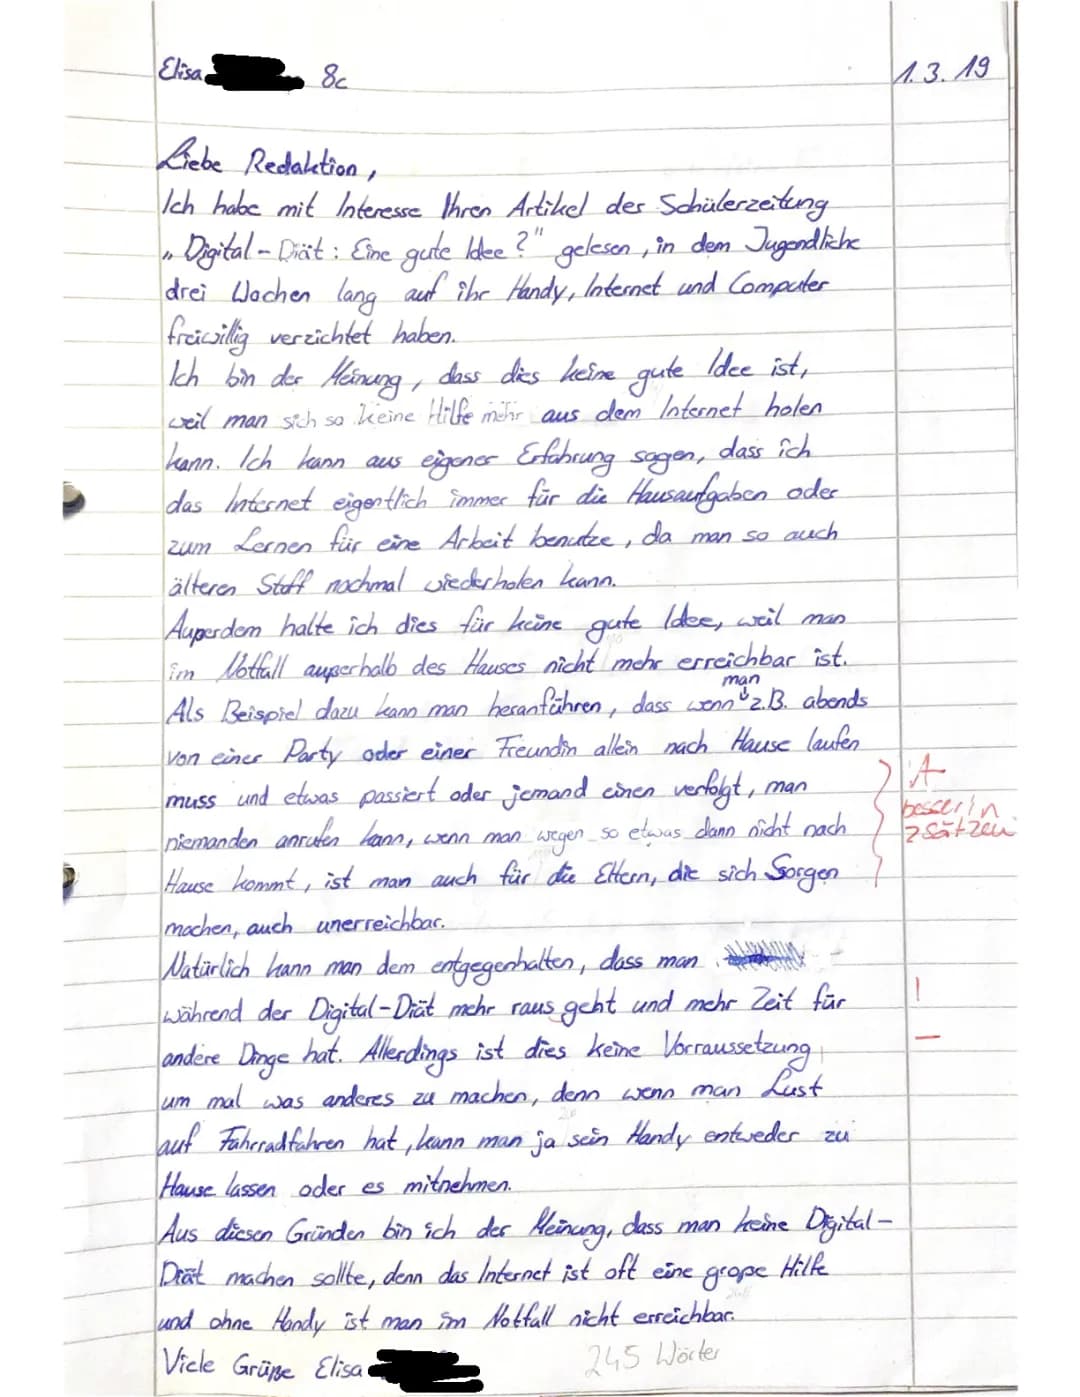 Elisa 8c 1.3.19
Liebe Redaktion,
Ich habe mit Interesse Ihren Artikel der Schülerzeitung
„Digital-Diät: Eine gute Idee?" gelesen, in dem Jugendliche
drei Wochen lang auf ihr Handy, Internet und Computer
freiwillig verzichtet haben.
Ich bin der Meinung, dass dies keine gute Idee ist,
weil man sich so keine Hilfe mehr aus dem Internet holen
kann. Ich kann aus eigener Erfahrung sagen, dass ich
das Internet eigentlich immer für die Hausaufgaben oder
zum Lernen für eine Arbeit benutze, da man so auch
älteren Stoff nochmal wiederholen kann.
Außerdem halte ich dies für keine gute Idee, weil man
im Notfall außerhalb des Hauses nicht mehr erreichbar ist.
man
Als Beispiel dazu kann man heranführen, dass wenn z.B. abends
von einer Party oder einer Freundin allein nach Hause laufen
muss und etwas passiert oder jemand einen verfolgt, man
A
besser in
2 Sätzen
niemanden anrufen kann, wenn man wegen so etwas dann nicht nach
Hause kommt, ist man auch für die Eltern, die sich Sorgen
machen, auch unerreichbar.
Natürlich kann man dem entgegenhalten, dass man
während der Digital-Diät mehr raus geht und mehr Zeit für !
andere Dinge hat. Allerdings ist dies keine Vorraussetzung —
um mal was anderes zu machen, denn wenn man Lust
auf Fahrradfahren hat, kann man ja sein Handy entweder zu
Hause lassen oder es mitnehmen.
Aus diesen Gründen bin ich der Meinung, dass man keine Digital-
Diät machen sollte, denn das Internet ist oft eine große Hilfe
und ohne Handy ist man im Notfall nicht erreichbar.
Viele Grüße Elisa 245 Wörter